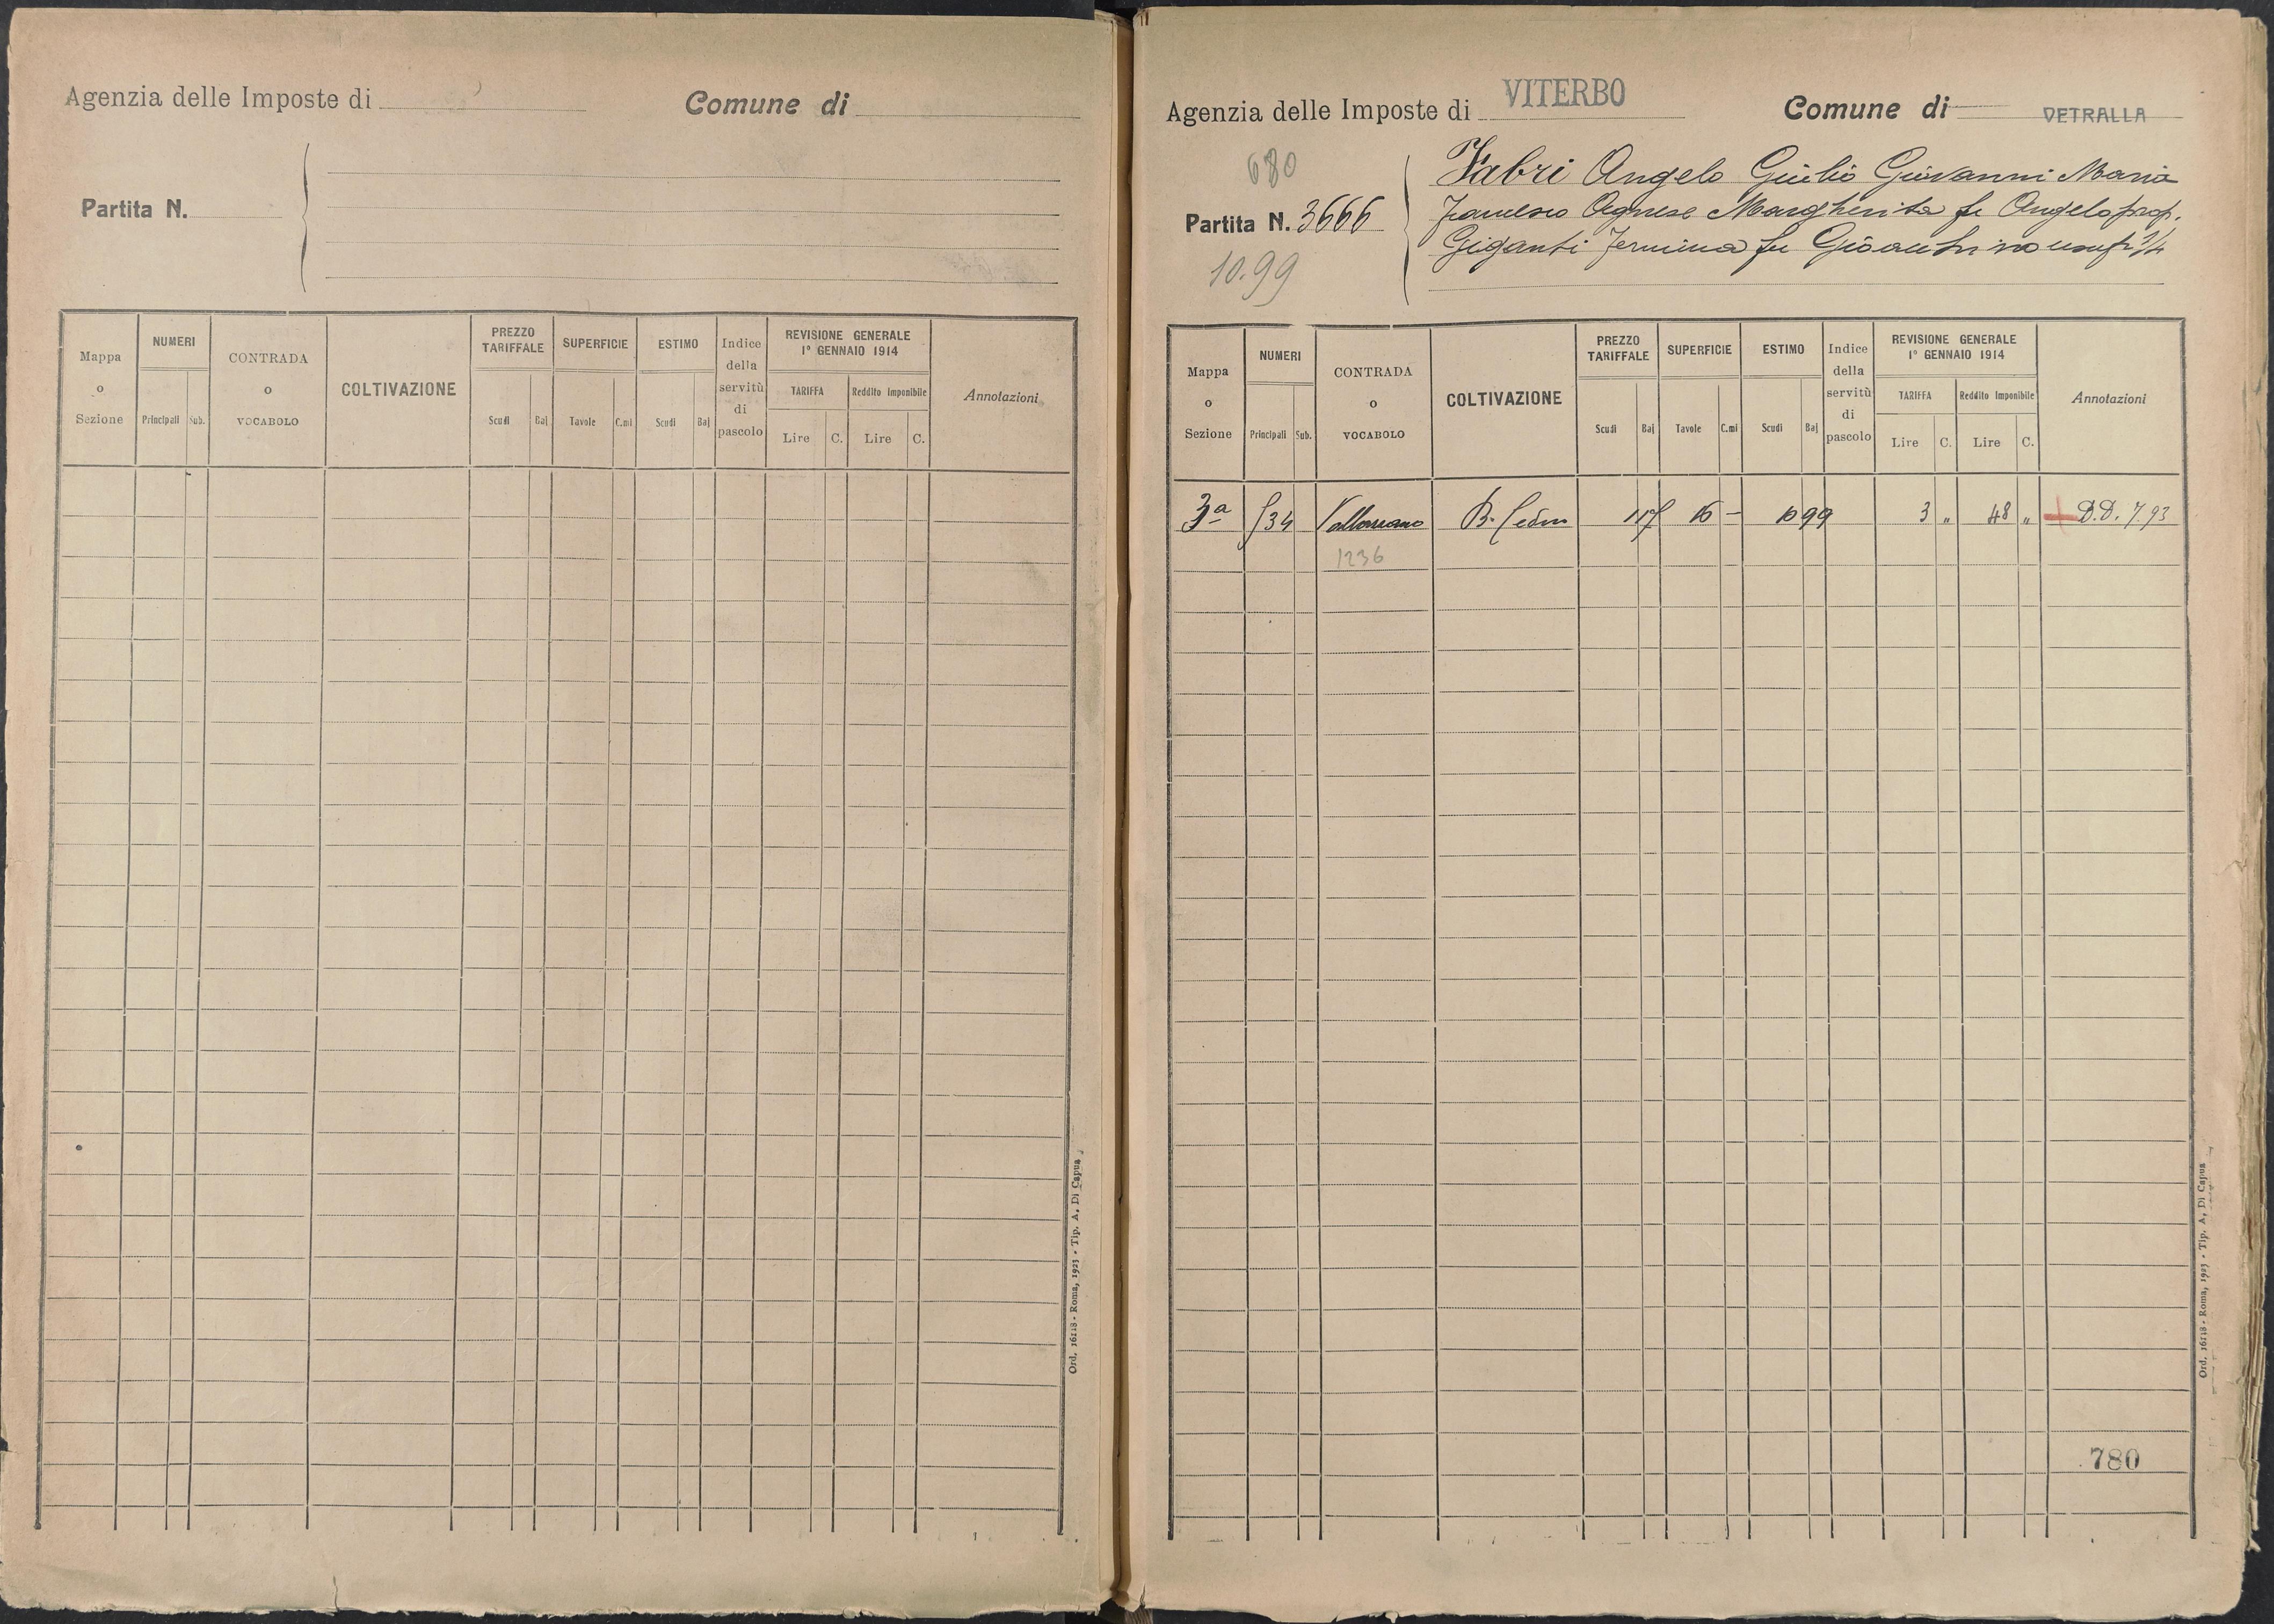 Agenzia delle Imposte di
Comune di
Partita N.
Mappa o Sezione
NUMERI
Principali Sub.
CONTRADA o VOCABOLO
COLTIVAZIONE
PREZZO TARIFFALE
Scudi Baj
SUPERFICIE
Tavole C.mi
ESTIMO
Scudi Baj
Indice della servitù di pascolo
REVISIONE GENERALE
1° GENNAIO 1914
TARIFFA
Lire C.
Reddito Imponibile
Lire C.
Annotazioni
Ord. 16118 - Roma, 1923 - Tip. A. Di Capua
Agenzia delle Imposte di VITERBO
Comune di VETRALLA
680
Partita N. 3666
10.99
Fabri Angelo Giulio Giovanni Maria
Francesco Agnese Margherita fu Angelo prop.
Giganti fu Gioacchino usuf 1/4
Mappa o Sezione
NUMERI
Principali Sub.
CONTRADA o VOCABOLO
COLTIVAZIONE
PREZZO TARIFFALE
Scudi Baj
SUPERFICIE
Tavole C.mi
ESTIMO
Scudi Baj
Indice della servitù di pascolo
REVISIONE GENERALE
1° GENNAIO 1914
TARIFFA
Lire C.
Reddito Imponibile
Lire C.
Annotazioni
3a 534 16 - 10 99 3 " 48 " D.D. 7.93
1236
780
Ord. 16118 - Roma, 1923 - Tip. A. Di Capua